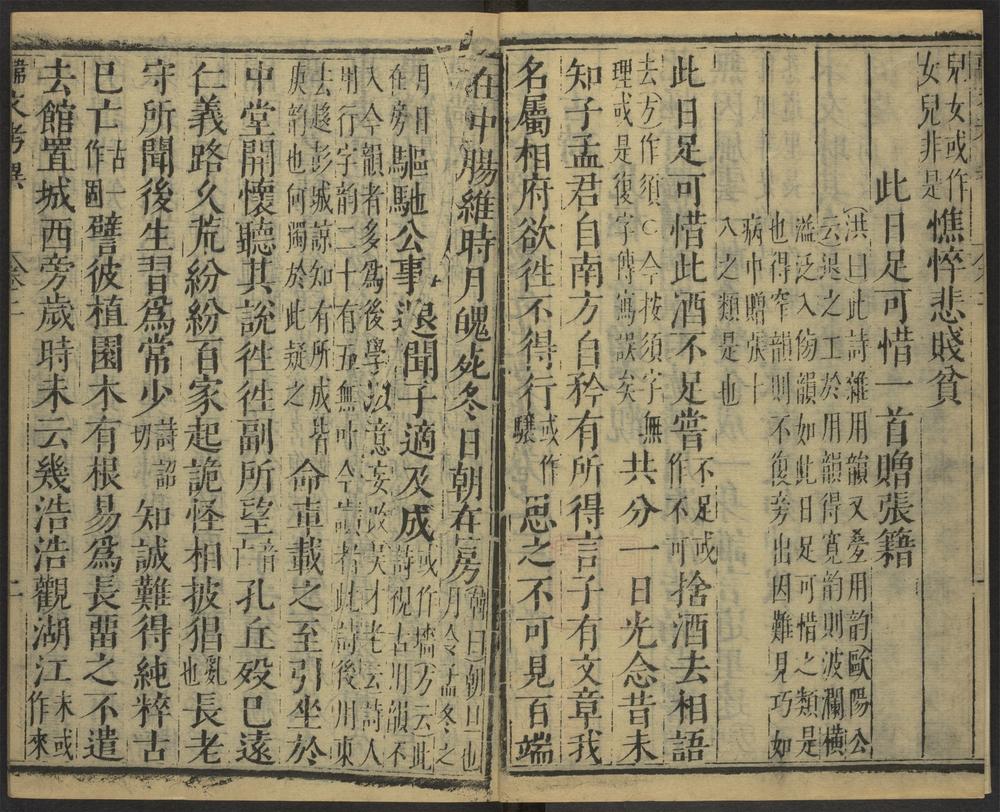 兒女或作女兒非是憔悴悲賤貧
此日足可惜一首贈張籍
(洪曰)此詩雜用韻又疊用韵(歐陽公
云退之工於用韻得寬韵則波瀾橫
溢泛入傍韻如此日足可惜之類是
也得窄韻則不復旁出因難見巧如
病中贈張十
八之類是也
此日足可惜此酒不足嘗不足或作不可捨酒去相語
去方作須○今按須字無理或是復字傳寫誤矣共分一日光念昔未
知子孟君自南方自矜有所得言子有文章我
名屬相府欲徃不得行或作驤思之不可見百端
在中腸維時月魄死冬日朝在房朝日一也月令孟冬之
月日在房驅馳公事退聞子適及成方云此詩視古用韻不
入今韻者多爲後學以意妄改吳才老云詩人
用行字韵二十有五無叶今讀者此詩後用東
去趍彭城諒知有所成皆庚韵也何獨於此疑之命車載之至引坐於
中堂開懷聽其說徃徃副所望音亡孔丘殁巳遠
仁義路久荒紛紛百家起詭怪相披猖亂也長老
守所聞後生習爲常少知誠難得純粹古
巳亡古作固譬彼植園木有根易爲長畱之不遣
去館置城西旁歲時未云幾浩浩觀湖江未或作來
韓文考異
二